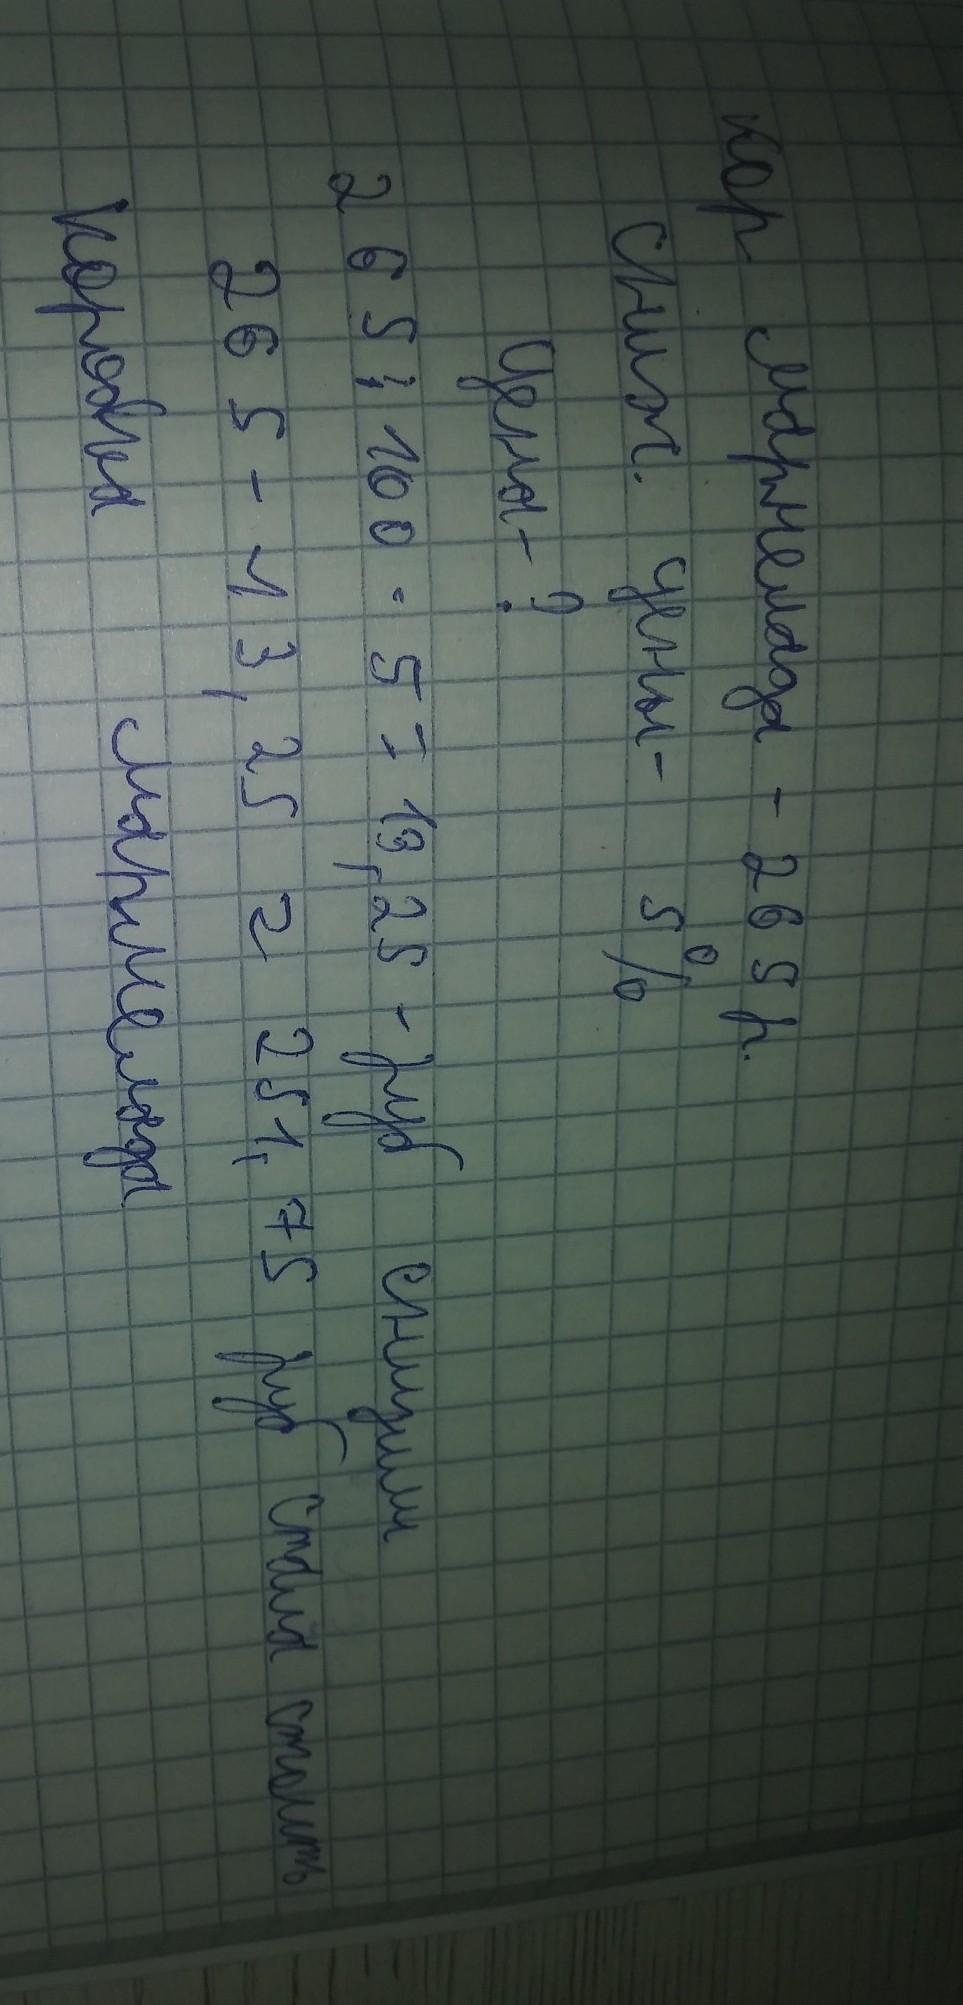 Кор мармелада - 265 р.
Сниж. цены - 5%
Цена - ?
265 : 100 · 5 = 13,25 - руб снизили
265 - 13,25 = 251,75 руб стала стоить
Коробка мармелада